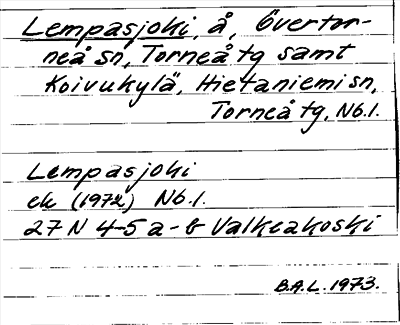 Lempasjoki, å, Övertor-
neå sn, Torneå tg samt
Koivukylä, Hietaniemi sn,
Torneå tg, Nb.l.
Lempasjoki
ek (1972) Nb.l.
27 N 4-5 a-b Valkeakoski
B.A.L. 1973.